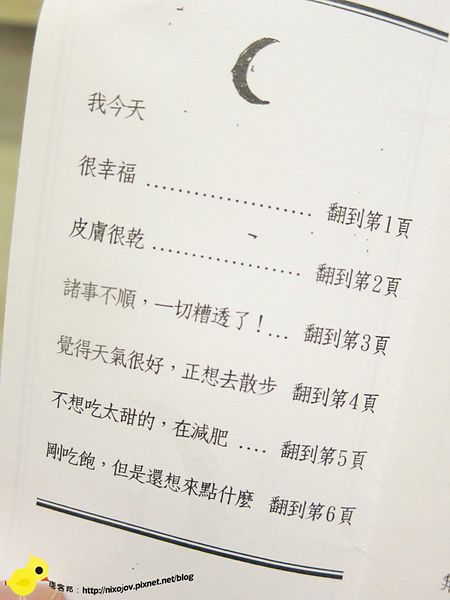 我今天
很幸福 .................... 翻到第1頁
皮膚很乾 .................. 翻到第2頁
諸事不順，一切糟透了！... 翻到第3頁
覺得天氣很好，正想去散步 翻到第4頁
不想吃太甜的，在減肥 .... 翻到第5頁
剛吃飽，但是還想來點什麼 翻到第6頁
痞客邦：http://nixojov.pixnet.net/blog